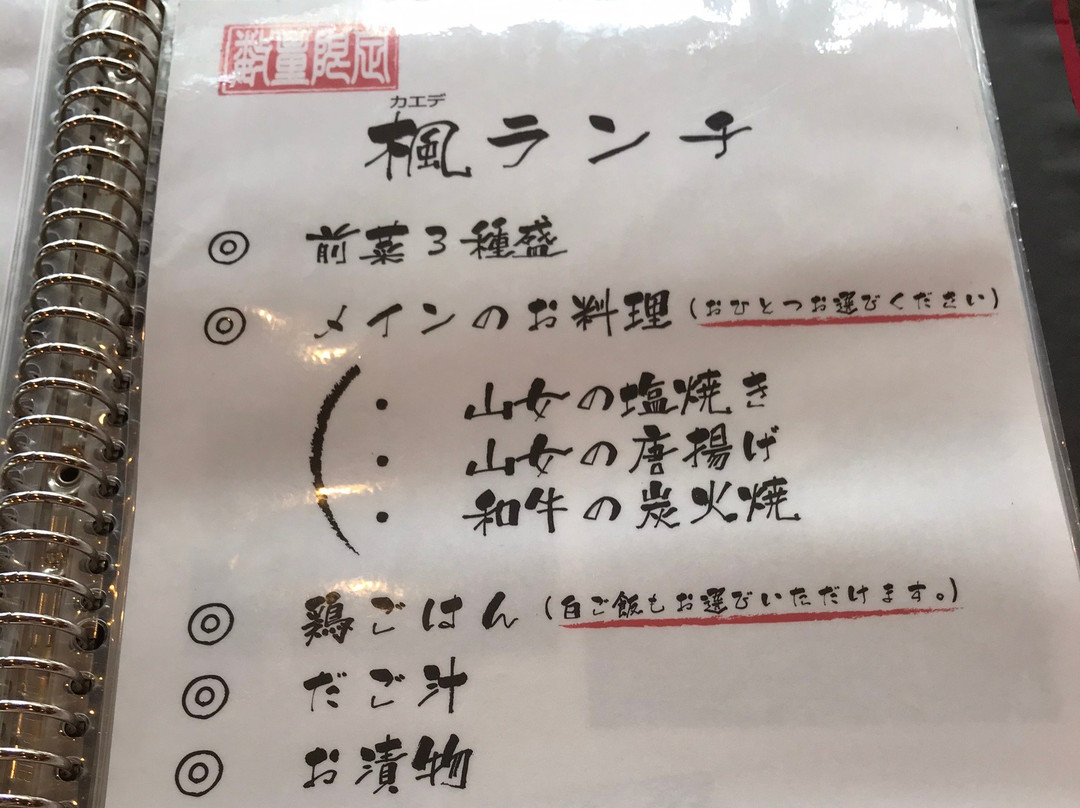 数量限定
カエデ
楓ランチ
◎ 前菜3種盛
◎ メインのお料理(おひとつお選びください)
・ 山女の塩焼き
・ 山女の唐揚げ
・ 和牛の炭火焼
◎ 鶏ごはん(白ご飯もお選びいただけます。)
◎ だご汁
◎ お漬物